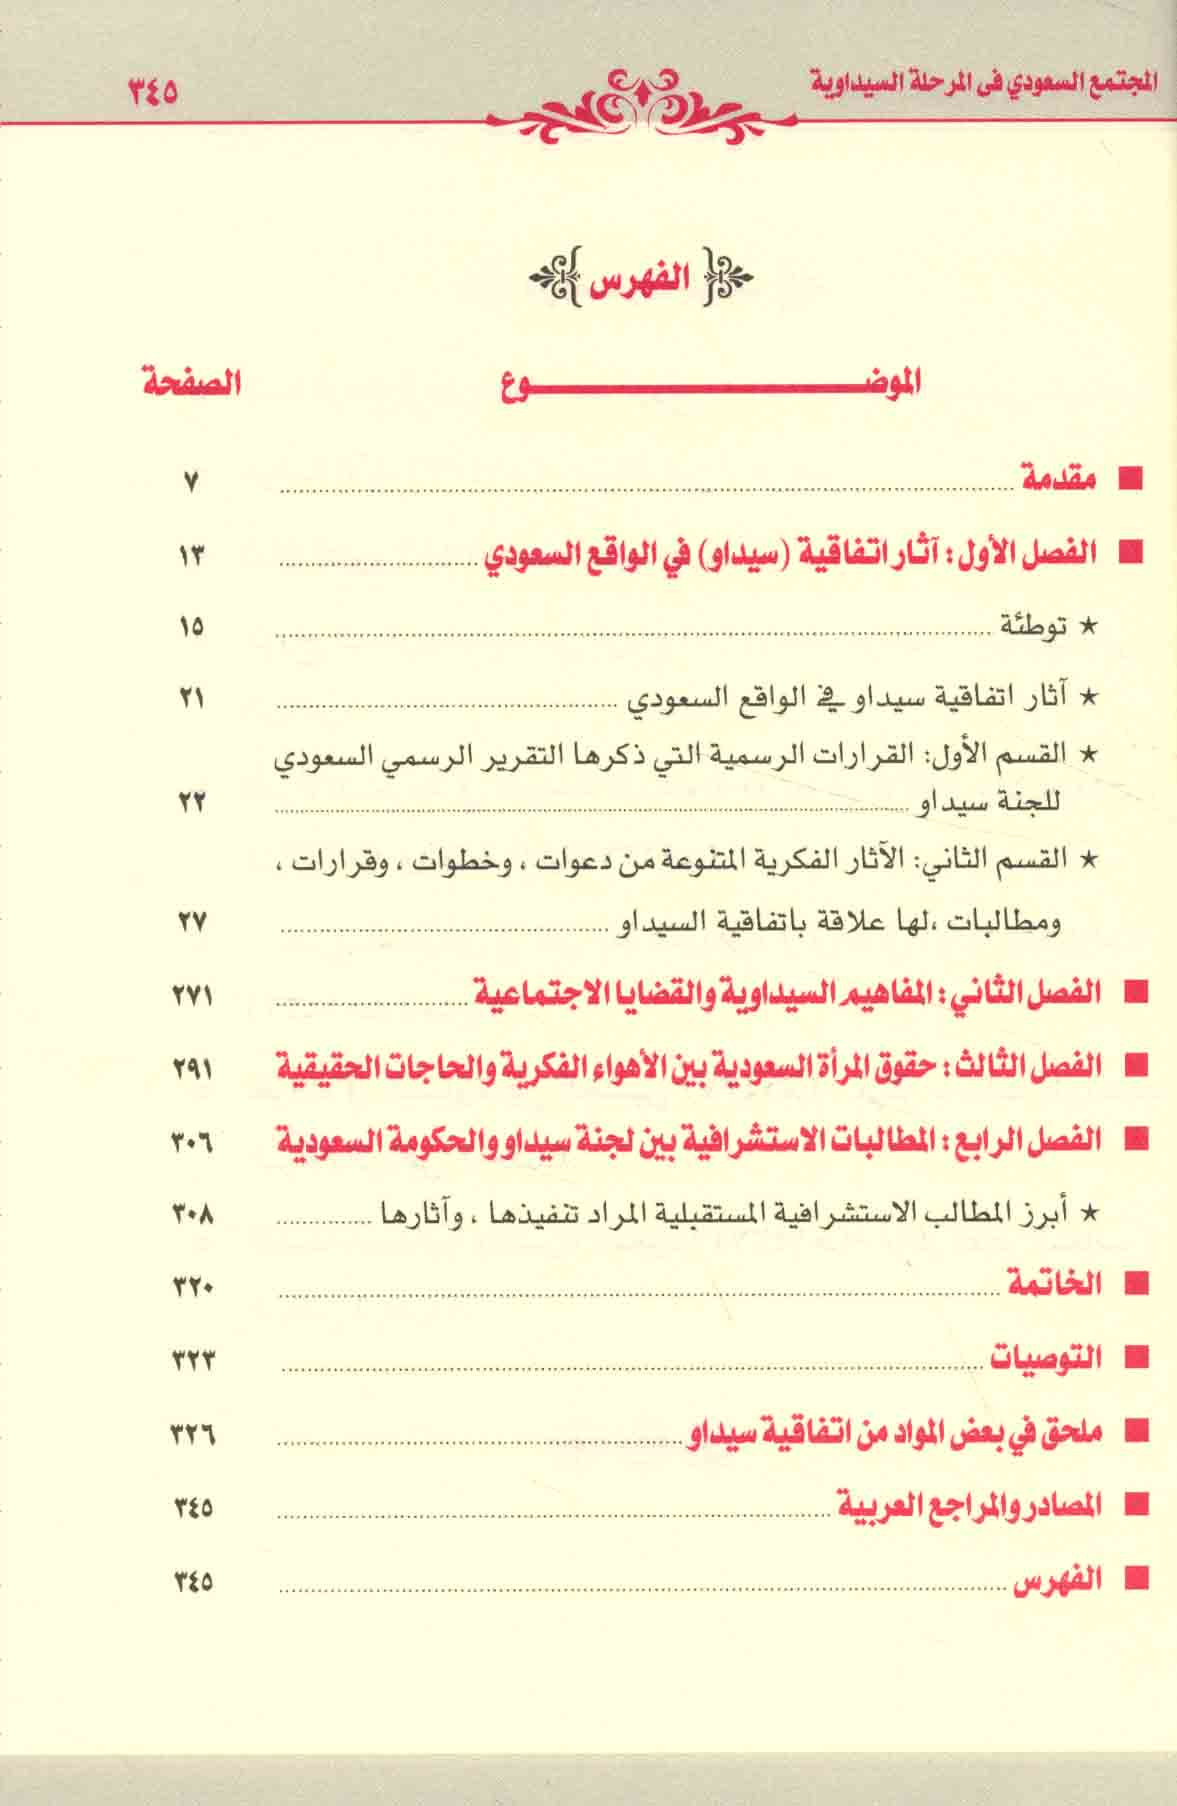 المجتمع السعودي فى المرحلة السيداوية ٣٤٥
الفهرس
الموضـــــــــــــــــوع الصفحة
مقدمة ........ ٧
الفصل الأول: آثار اتفاقية (سيداو) في الواقع السعودي ........ ١٣
★ توطئة ........ ١٥
★ آثار اتفاقية سيداو في الواقع السعودي ........ ٢١
★ القسم الأول: القرارات الرسمية التي ذكرها التقرير الرسمي السعودي
للجنة سيداو ........ ٢٢
★ القسم الثاني: الآثار الفكرية المتنوعة من دعوات ، وخطوات ، وقرارات ،
ومطالبات ،لها علاقة باتفاقية السيداو ........ ٢٧
الفصل الثاني: المفاهيم السيداوية والقضايا الاجتماعية ........ ٢٧١
الفصل الثالث: حقوق المرأة السعودية بين الأهواء الفكرية والحاجات الحقيقية ٢٩١
الفصل الرابع: المطالبات الاستشرافية بين لجنة سيداو والحكومة السعودية ٣٠٦
★ أبرز المطالب الاستشرافية المستقبلية المراد تنفيذها ، وآثارها ........ ٣٠٨
الخاتمة ........ ٣٢٠
التوصيات ........ ٣٢٣
ملحق في بعض المواد من اتفاقية سيداو ........ ٣٢٦
المصادر والمراجع العربية ........ ٣٤٥
الفهرس ........ ٣٤٥